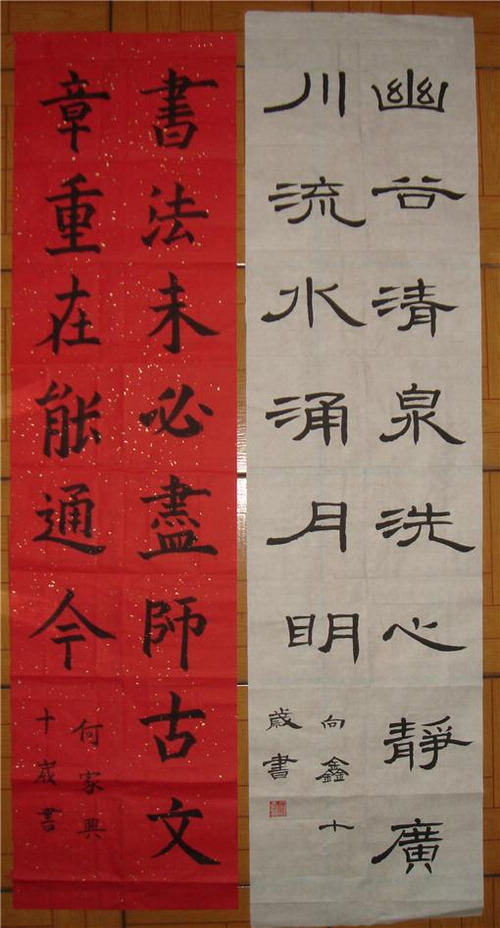 幽谷清泉洗心靜廣
川流水涌月明
向鑫十
歲書
書法未必盡師古文
章重在能通今
何家興
十歲書